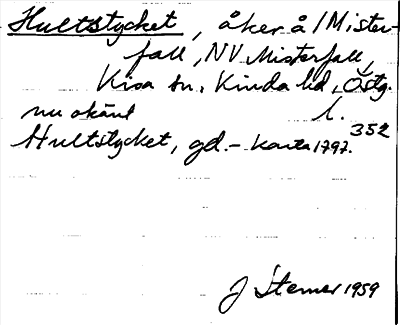 Hultstycket, åker å /Mister-
fall, NV Misterfall,
Kisa sn, Kinda hd, Östg.
nu okänt l.
352
Hultstycket, gd. - karta 1797.
J Sterner 1959